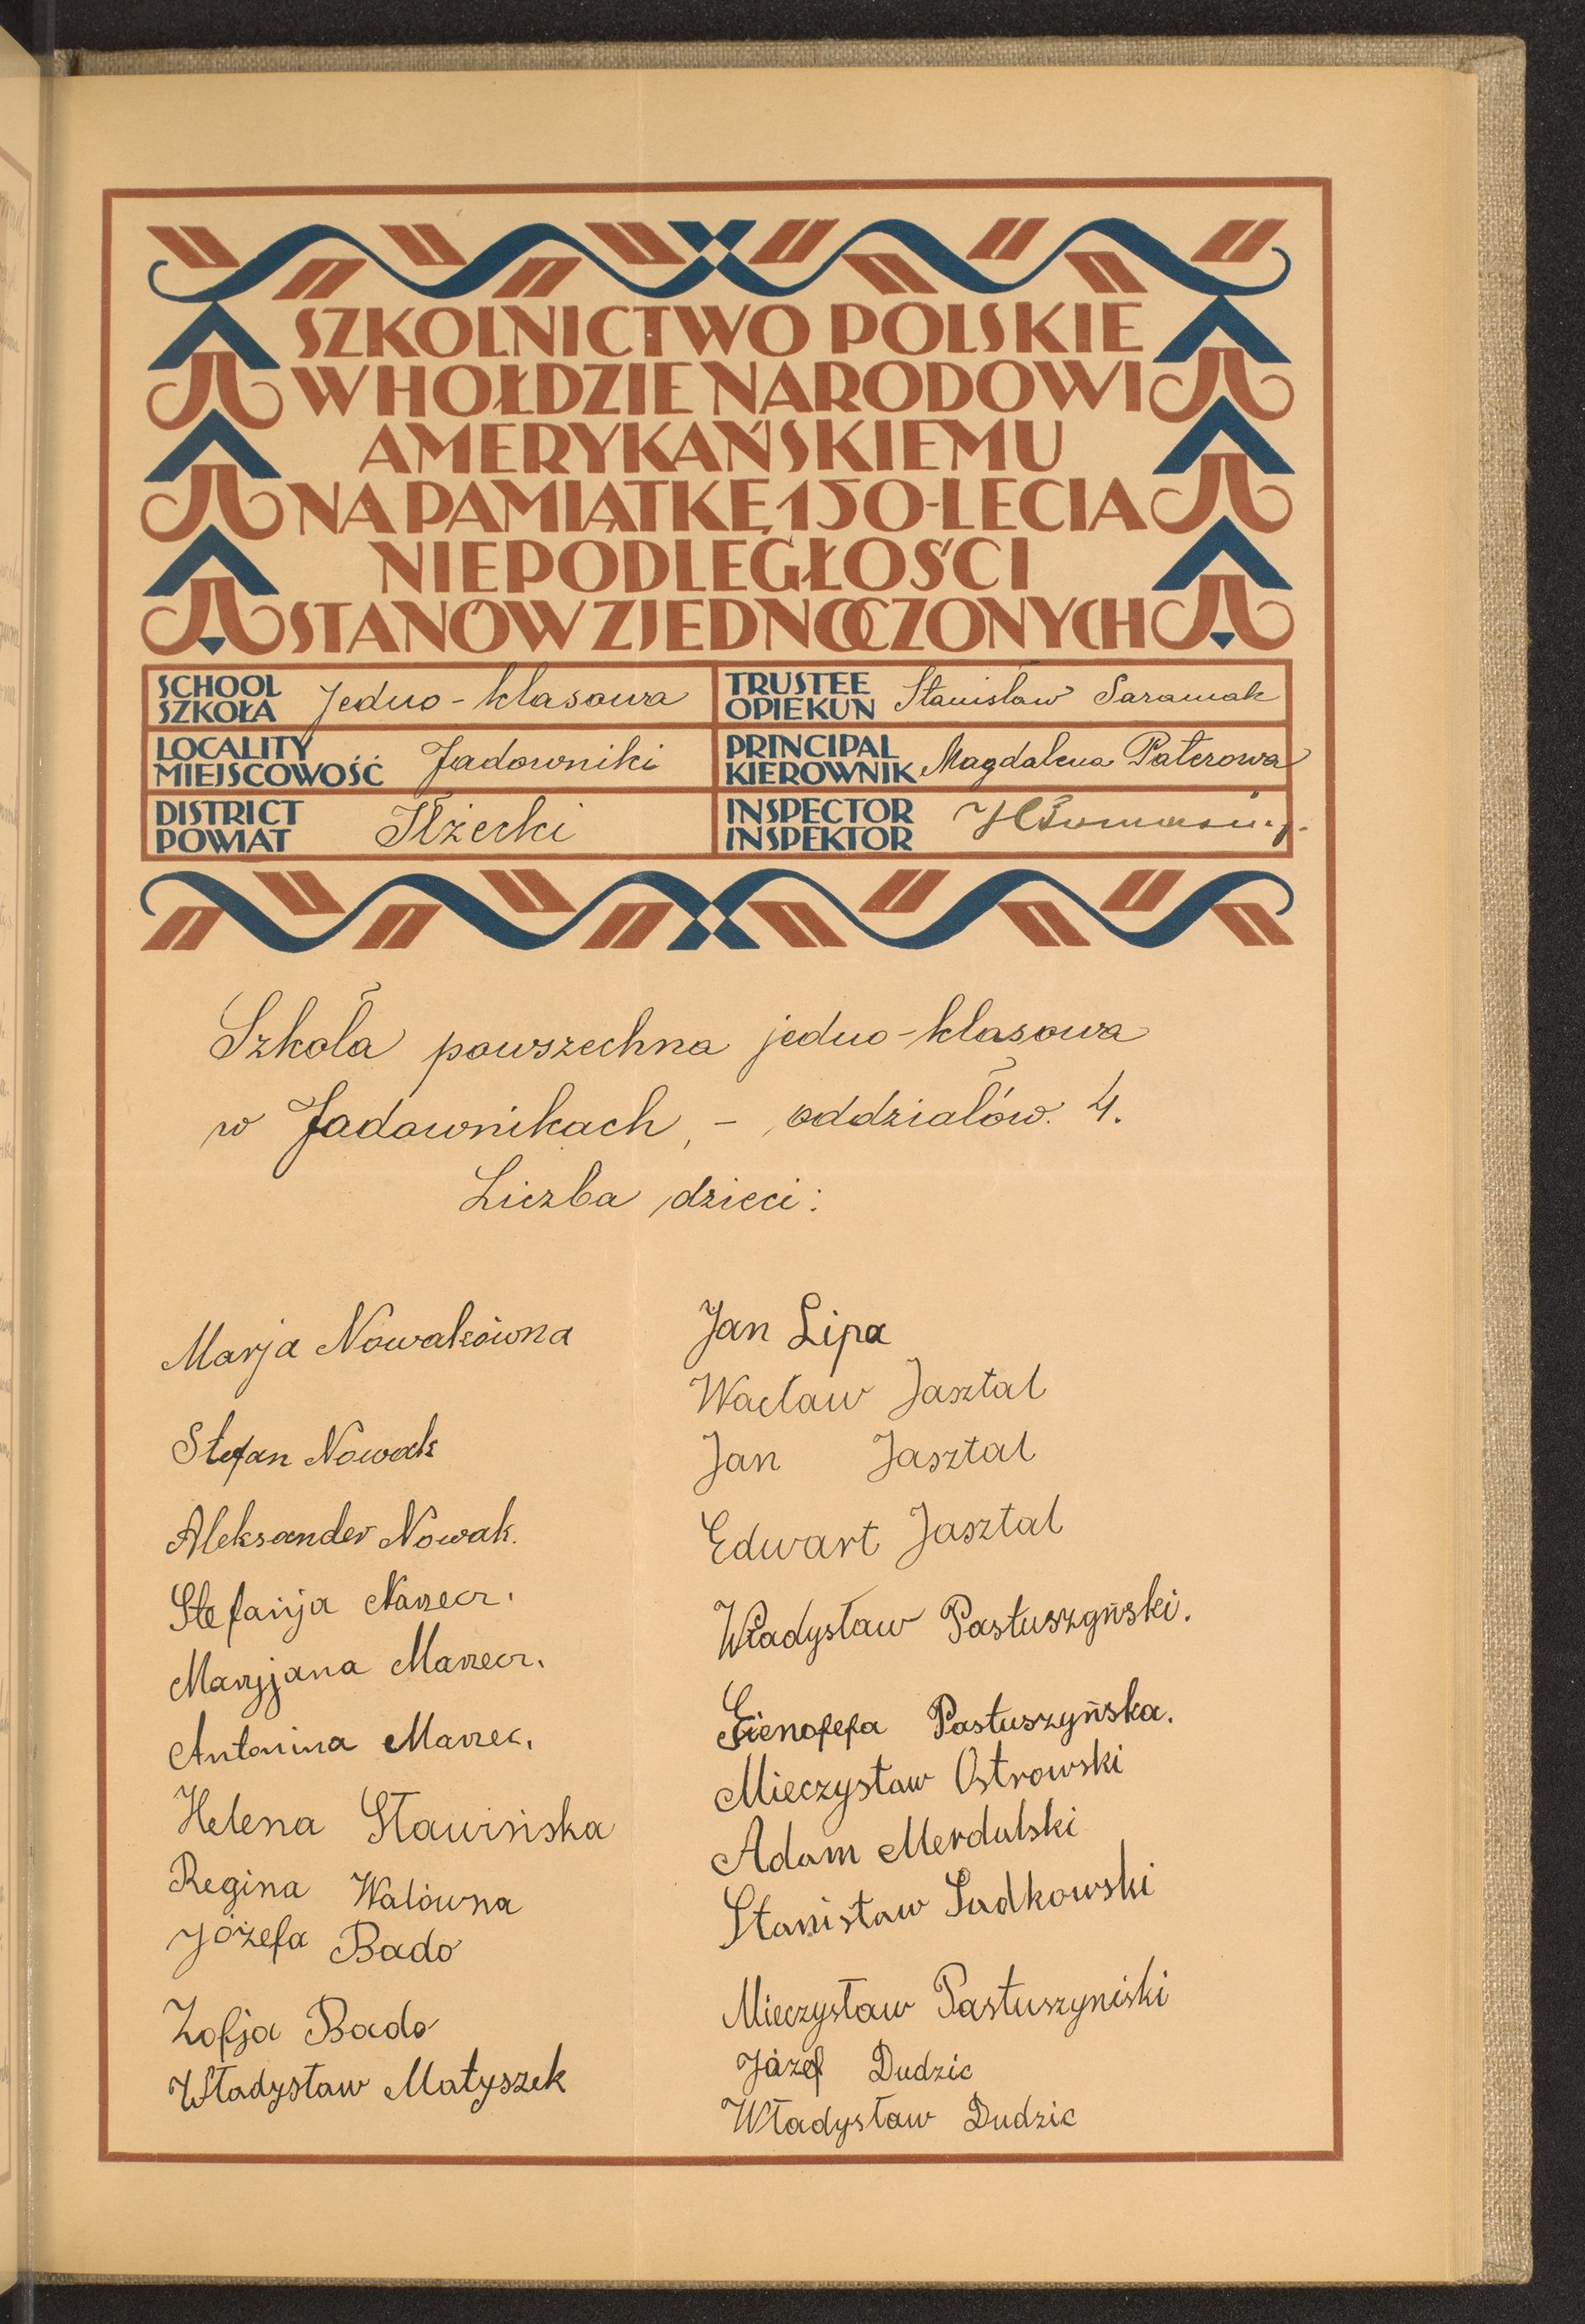 SZKOLNICTWO POLSKIE
W HOŁDZIE NARODOWI
AMERYKAŃSKIEMU
NA PAMIĄTKĘ 150-LECIA
NIEPODLEGŁOŚCI
STANÓW ZJEDNOCZONYCH
SCHOOL
SZKOŁA
Jedno-klasowa
TRUSTEE
OPIEKUN
Stanisław Saramak
LOCALITY
MIEJSCOWOŚĆ
Jadowniki
PRINCIPAL
KIEROWNIK
Magdalena Paterowa
DISTRICT
POWIAT
Iłżecki
INSPECTOR
INSPEKTOR
Szkoła powszechna jedno-klasowa
w Jadownikach, - oddziałów. 4.
Liczba dzieci:
Marja Nowakówna
Stefan Nowak
Aleksander Nowak.
Stefanja Marzec.
Maryjana Marzec.
Antonina Marzec.
Helena Sławińska
Regina Walówna
Józefa Bado
Zofja Bado
Władysław Matyszek
Jan Lipa
Wacław Jasztal
Jan Jasztal
Edwart Jasztal
Władysław Pastuszyński.
Gienofefa Pastuszyńska.
Mieczysław Ostrowski
Adam Merdalski
Stanisław Sadkowski
Mieczysław Pastuszyniski
Józef Dudzic
Władysław Dudzic